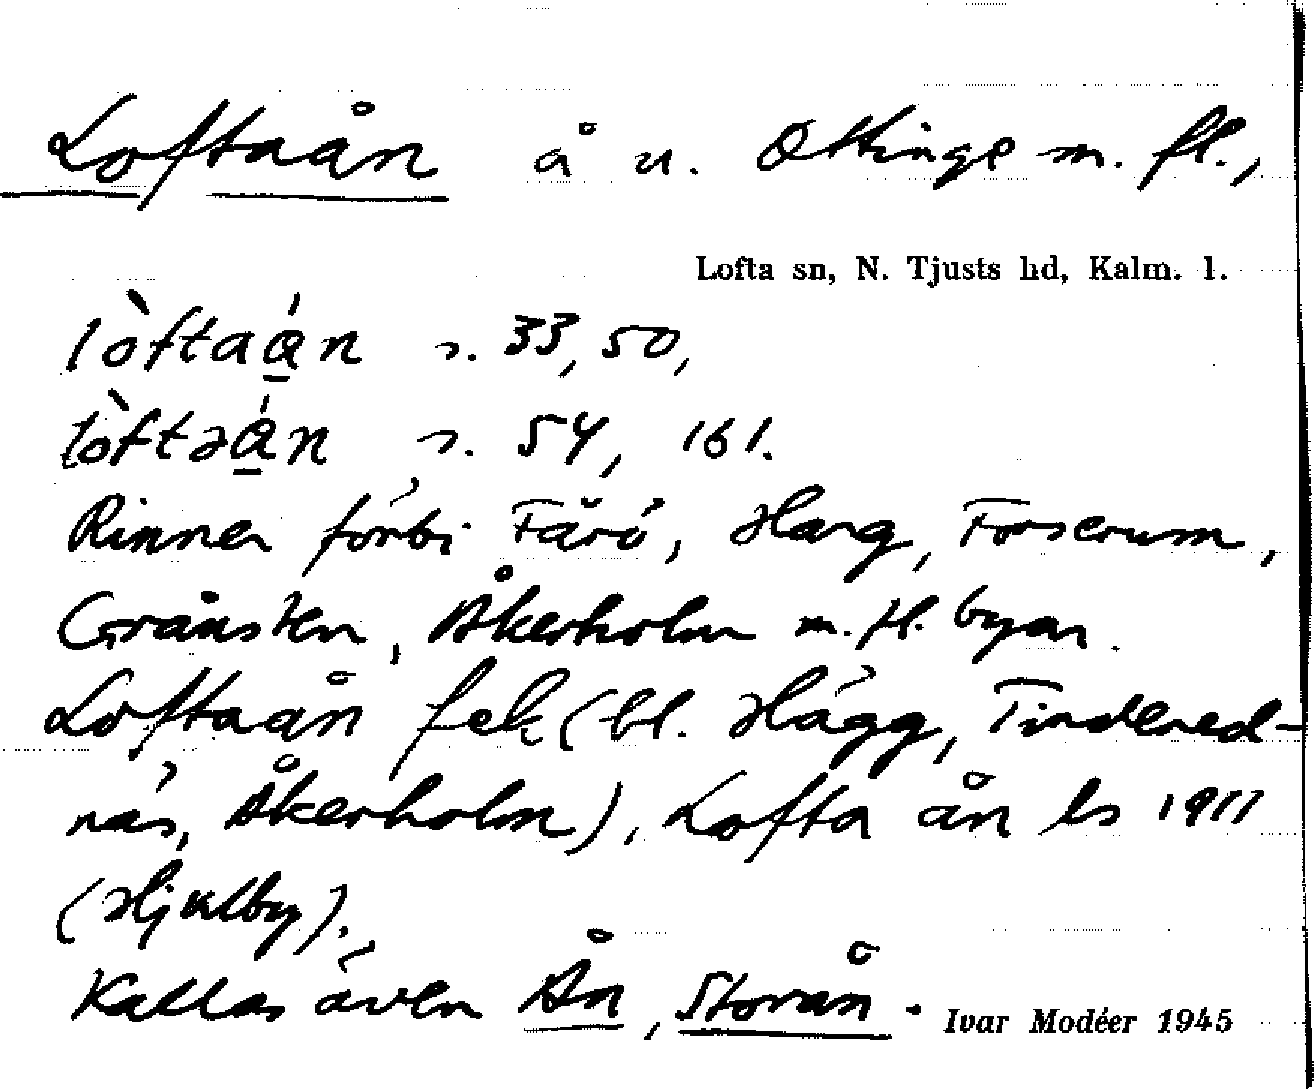 Loftaån å u. Ottinge m. fl.,
Lofta sn, N. Tjusts hd, Kalm. l.
lò̀fta(ǻ)n s. 33, 50,
lò̀ftə(ǻ)n s. 54, 161.
Rinner förbi Färö, Harg, Forserum,
Gränsten, Åkerholm m. fl. byar.
Loftaån fek (bl. Hägg, Tindered-
näs, Åkerholm), Lofta ån ls 1911
(Hjulby).
Kallas även Ån, Storån.
Ivar Modéer 1945